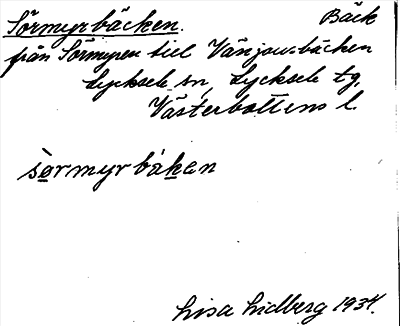 Sörmyrbäcken. Bäck
från Sörmyren till Vänjaurbäcken
Lycksele sn, Lycksele tg,
Västerbottens l.
sörmyrbäken
Lisa Lidberg 1934.